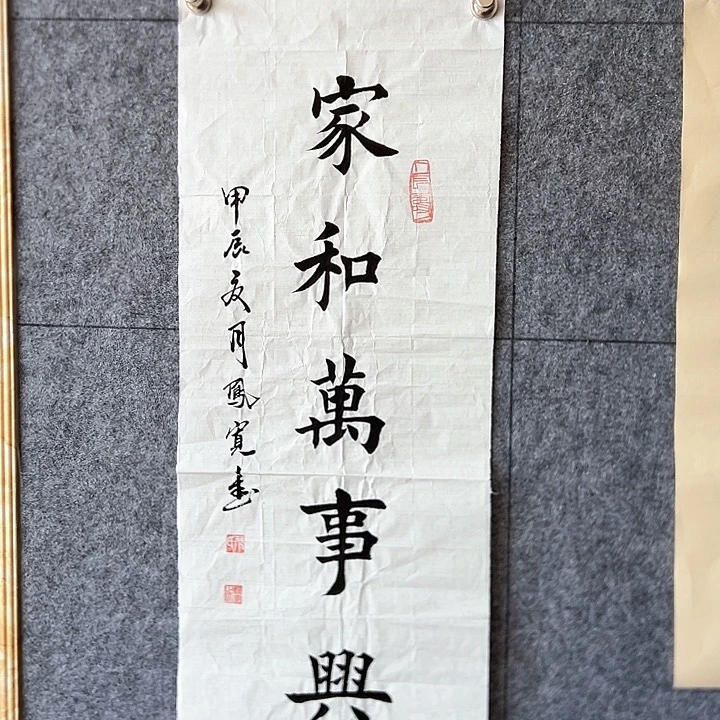 家和萬事興
甲辰亥月鳳寬書